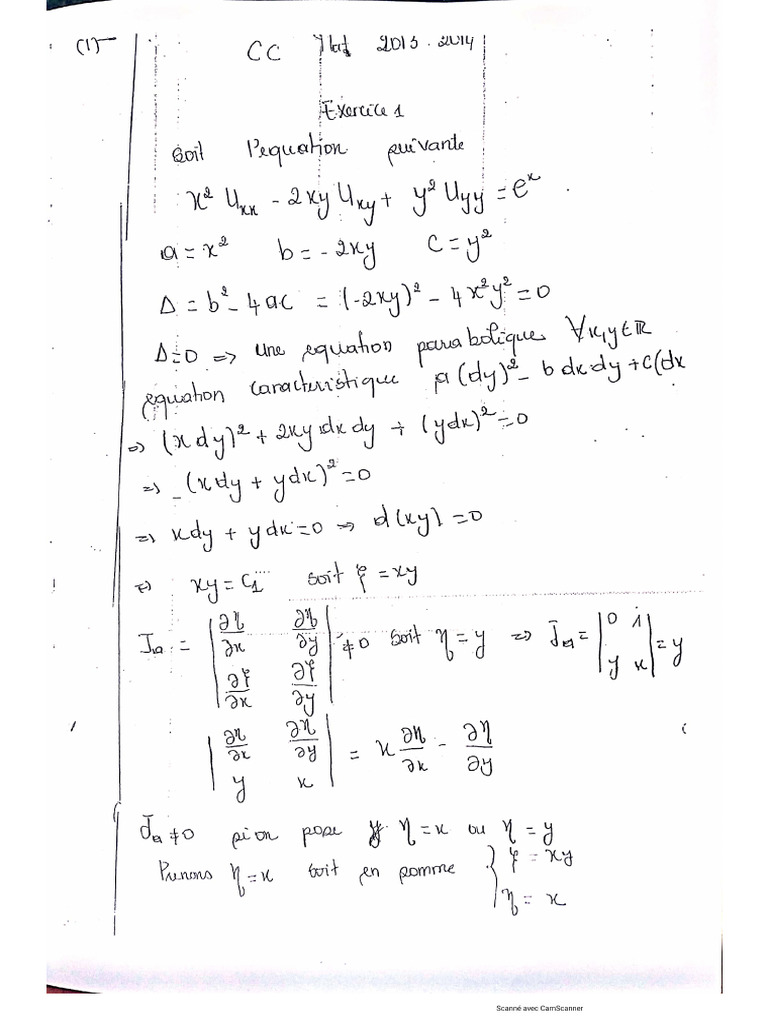 (1)
CC 2013-2014
Exercice 1
Soit l'equation suivante
x² Uxx - 2xy Uxy + y² Uyy = e^x .
a = x² b = -2xy C = y²
Δ = b² - 4ac = (-2xy)² - 4x²y² = 0
Δ=0 => une equation parabolique ∀x,y∈ℝ
equation caracteristique a(dy)² - b dxdy + c(dx
=> (xdy)² + 2xy dxdy + (ydx)² = 0
=> (xdy + ydx)² = 0
=> xdy + ydx = 0 => d(xy) = 0
=> xy = C₁ soit ξ = xy
J = |∂η/∂x ∂η/∂y ; ∂ξ/∂x ∂ξ/∂y| ≠ 0 soit η = y => J = |0 1 ; y x| = y
|∂η/∂x ∂η/∂y ; y x| = x ∂η/∂x - ∂η/∂y
J ≠ 0 si on pose η = x ou η = y
Prenons η = x soit en somme { ξ = xy
η = x
Scanné avec CamScanner